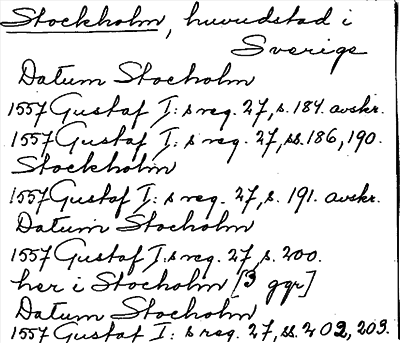 Stockholm, huvudstad i
Sverige
Datum Stocholm
1557 Gustaf I: s reg. 27, s. 184. avskr.
1557 Gustaf I: s reg. 27, ss. 186, 190.
Stockholm
1557 Gustaf I: s reg. 27, s. 191. avskr.
Datum Stocholm
1557 Gustaf I. s reg. 27, s. 200.
her i Stocholm [3 ggr]
Datum Stocholm
1557 Gustaf I: s reg. 27, ss. 202, 203.